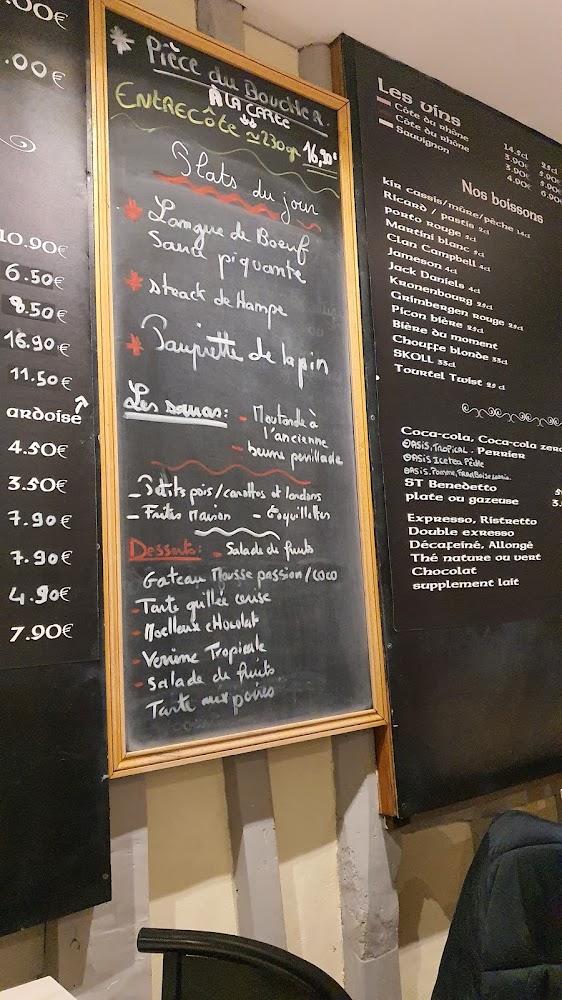 .00€
.00€
10.90€
6.50€
8.50€
16.90€
11.50€
ardoise
4.50€
3.50€
7.90€
7.90€
4.90€
7.90€
Pièce du Boucher
À LA CARTE
Entrecôte ≈ 230gr 16,90€
Plats du jour
Langue de Boeuf
Sauce piquante
steack de Hampe
Paupiette de lapin
Les sauces:
- Moutarde à
l'ancienne
- beurre persillade
- Petits pois/carottes et lardons
- Frites Maison - Coquillettes
Desserts: - Salade de fruits
Gateau Mousse passion/coco
- Tarte grillée cerise
- Moelleux cHocolat
- Verrine Tropicale
- Salade de fruits
Tarte aux poires
Les vins
14.5cl 25cl
Côte du rhône 3.90€ 5.90€
Côte du rhône 3.90€ 5.90€
Sauvignon 4.00€ 6.00€
Nos boissons
kir cassis/mûre/pêche 14cl
Ricard / pastis 2cl
porto rouge 5cl
Martini blanc 5cl
Clan Campbell 4cl
Jameson 4cl
Jack Daniels 4cl
Kronenbourg 25cl
Grimbergen rouge 25cl
Picon bière 25cl
Bière du moment
Chouffe blonde 33cl
SKOLL 33cl
Tourtel Twist 25cl
Coca-cola, Coca-cola zero
OASIS, TROPICAL - Perrier
OASIS Icetea Pêche
OASIS. Pomme, Framboise
ST Benedetto
plate ou gazeuse
Expresso, Ristretto
Double exresso
Décafeiné, Allongé
Thé nature ou vert
Chocolat
supplement lait